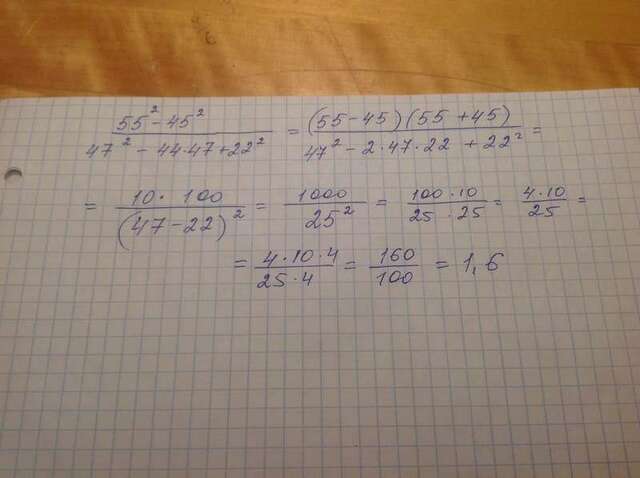 55² - 45² / 47² - 44·47 + 22² = (55 - 45)(55 + 45) / 47² - 2·47·22 + 22² =
= 10 · 100 / (47 - 22)² = 1000 / 25² = 100 · 10 / 25 · 25 = 4 · 10 / 25 =
= 4 · 10 · 4 / 25 · 4 = 160 / 100 = 1,6